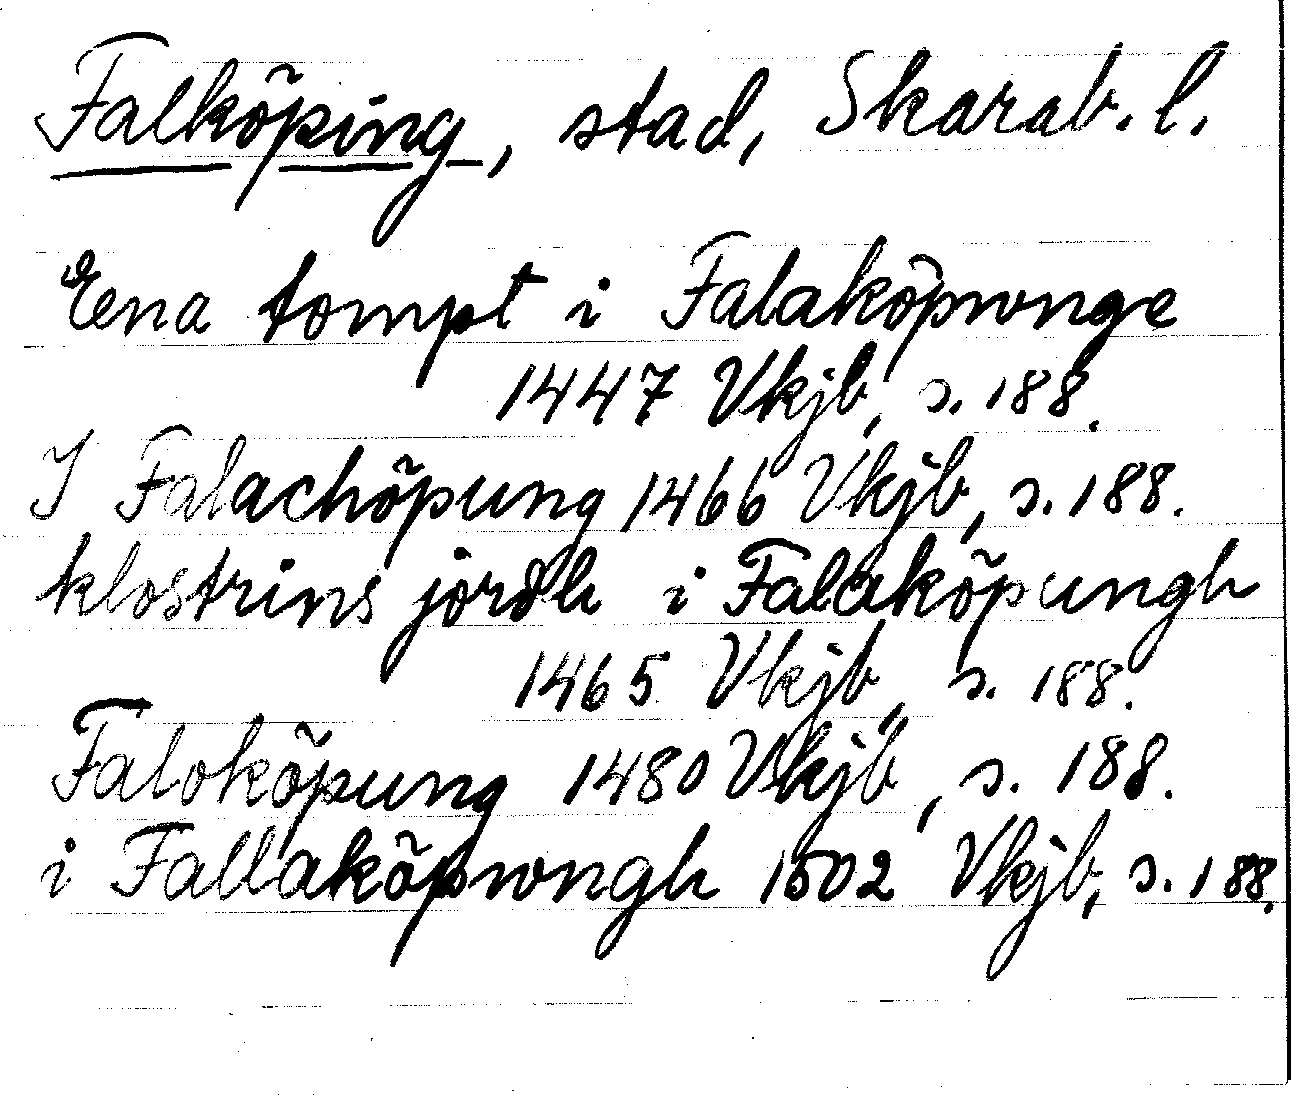 Falköping, stad, Skarab. l.
Ena tompt i Falaköpwnge
1447 Vkjb, s. 188.
I Falachöpung 1466 Vkjb, s. 188.
klostrins jördh i Falaköpungh
1465 Vkjb, s. 188.
Faloköpung 1480 Vkjb, s. 188.
i Fallaköpwngh 1502 Vkjb, s. 188.